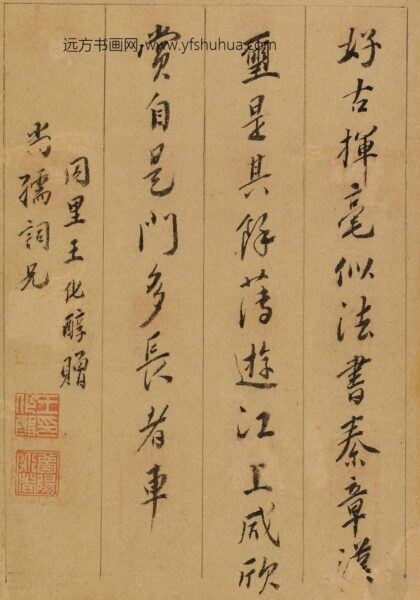 远方书画网 www.yfshuhua.com
好古揮毫似法書秦章漢
璽是其餘薄遊江上咸欣
賞自是門多長者車
同里王化醇贈
尚孺詞兄